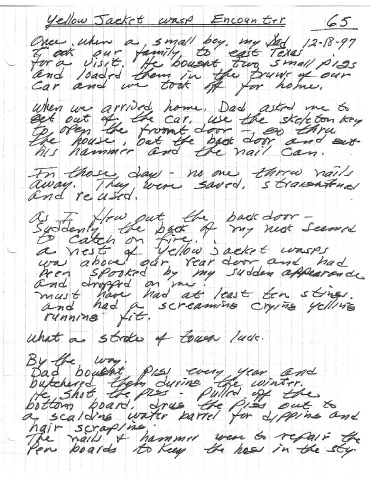 Yellow Jacket wasp Encounter 65
Once when a small boy, my Dad 12-18-97
took our family to east Texas
for a visit. He bought two small pigs
and loaded them in the trunk of our
car and we took off for home.
When we arrived home, Dad asked me to
get out of the car, use the skeleton key
to open the front door -, go thru
the house, out the back door and get
his hammer and the nail can.
In those days - no one threw nails
away. They were saved, straightened
and reused.
As I flew out the back door -
Suddenly the back of my neck seemed
to catch on fire.
a nest of yellow jacket wasps
was above our rear door and had
been spooked by my sudden appearance
and dropped on me.
must have had at least ten stings.
and had a screaming crying yelling
running fit.
What a stroke of tough luck.
By the way.
Dad bought pigs every year and
butchered them during the winter.
He shot the pigs - pulled off the
bottom board, drug the pigs out to
a scalding water barrel for dipping and
hair scraping.
The nails & hammer were to repair the
Pen boards to keep the hogs in the sty.